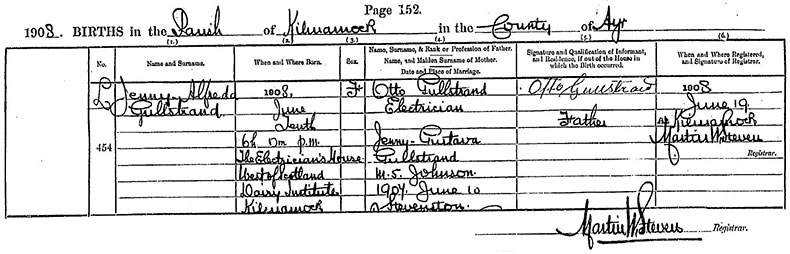 Page 152.
1908. BIRTHS in the Parish of Kilmarnock in the County of Ayr
(1.) (2.) (3.) (4.) (5.) (6.)
No. Name and Surname. When and Where Born. Sex. Name, Surname, & Rank or Profession of Father. Name, and Maiden Surname of Mother. Date and Place of Marriage. Signature and Qualification of Informant, and Residence, if out of the House in which the Birth occurred. When and Where Registered, and Signature of Registrar.
Jenny Alfreda 1908, F Otto Gullstrand Otto Gullstrand 1908
Gullstrand June Electrician June 19
Tenth Father At Kilmarnock
454 6h. 0m p.m. Jenny Gustava Martin W. Steven
The Electrician's House Gullstrand Registrar.
West of Scotland M.S. Johnson
Dairy Institute 1907 June 10
Kilmarnock Stevenston
Martin W. Steven Registrar.